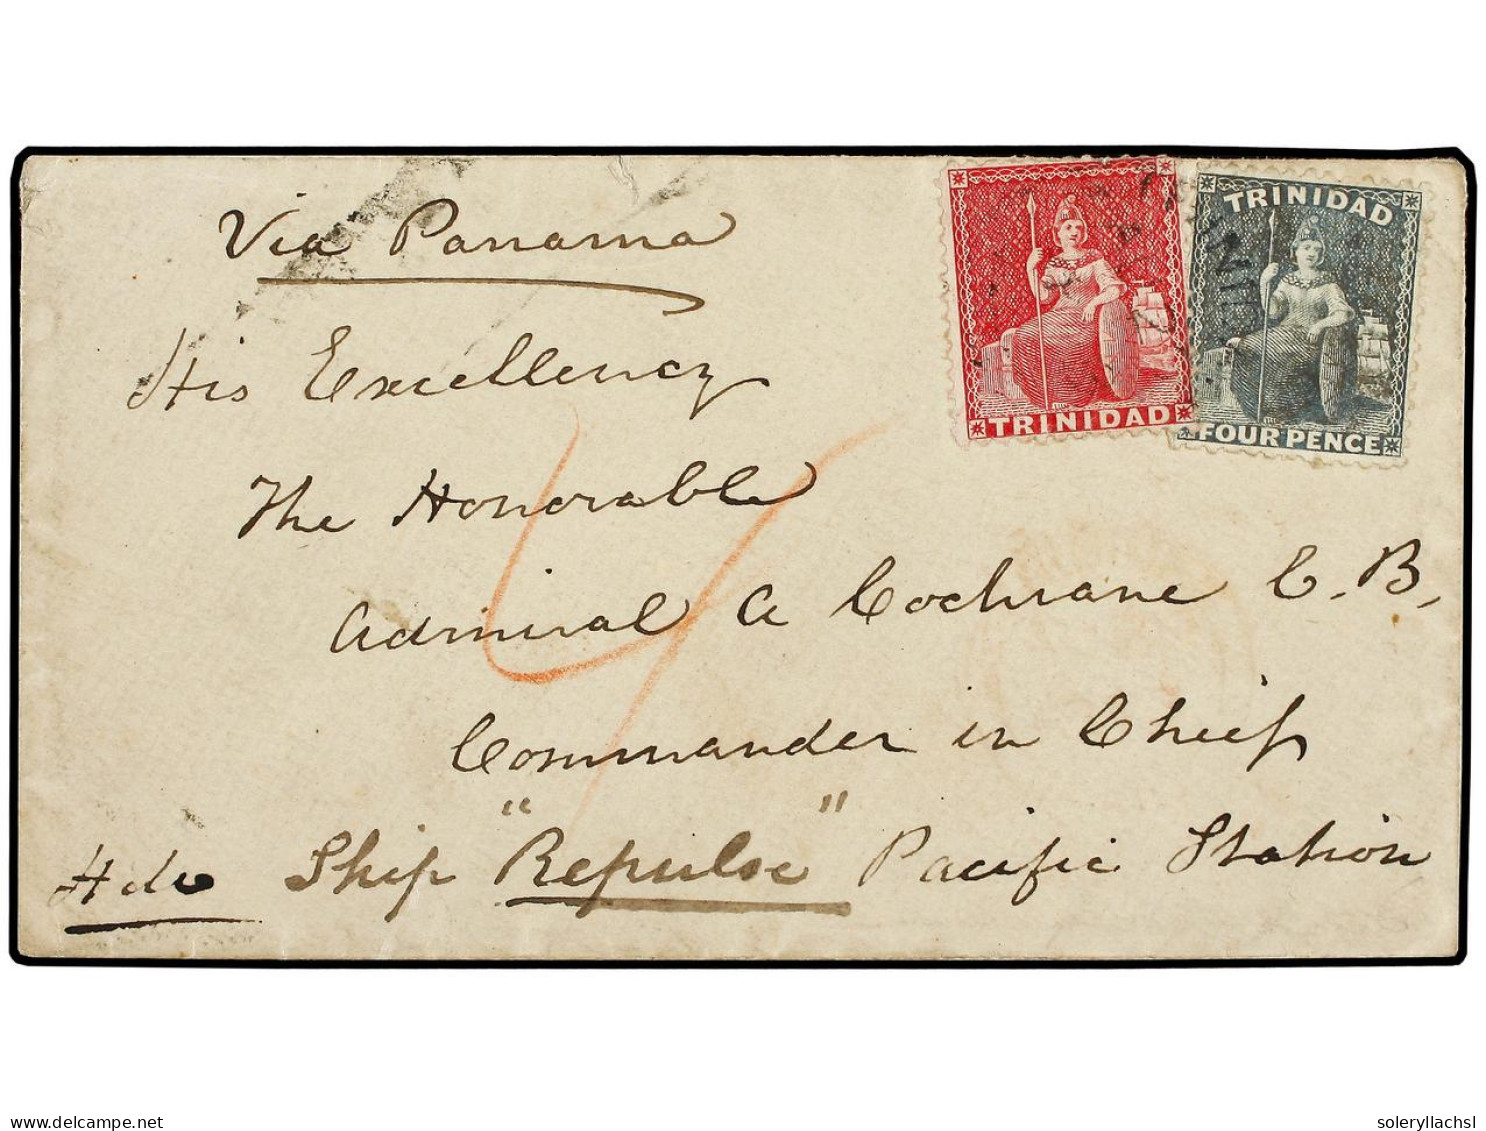 Via Panama
TRINIDAD
TRINIDAD
FOUR PENCE
His Excellency
The Honorable
Admiral A Cochrane C.B,
Commander in Chief
Ship "Repulse" Pacific Station
delcampe.net
soleryllachsl